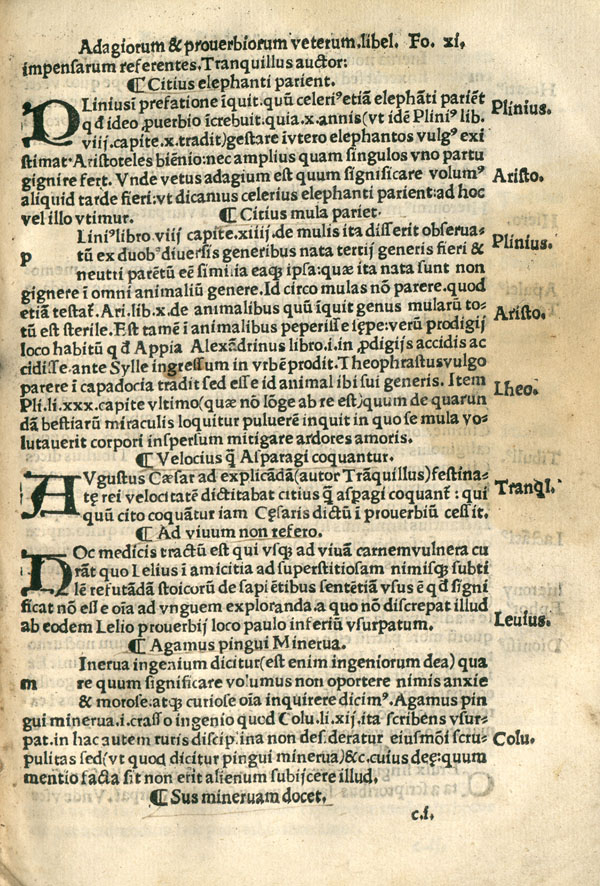 Adagiorum & prouerbiorum veterum.libel. Fo. xi.
impensarum referentes. Tranquillus auctor:
¶ Citius elephanti parient.
PLiniusī prefatione īquit.quū celeriꝰ etiā elephāti pariēt
qđ ideo ꝓuerbio īcrebuit.quia.x.annis(vt idē Pliniꝰ lib.
viij.capite.x.tradit)gestare īvtero elephantos vulgꝰ exi
stimat·Aristoteles biēnio:nec amplius quam singulos vno partu
gignire fert. Vnde vetus adagium est quum significare volumꝰ
aliquid tarde fieri:vt dicamus celerius elephanti parient:ad hoc
vel illo vtimur. ¶ Citius mula pariet·
Plinius.
Aristo.
p Liniꝰ libro viij capite.xiiij.de mulis ita disserit obserua-
tū ex duobꝰ diuersis generibus nata tertij generis fieri &
neutri parētū eē simi.ia eaqꝫ ipsa:quæ ita nata sunt non
gignere ī omni animaliū genere.Id circo mulas nō parere.quod
etiā testat̄. Ari.lib.x.de animalibus quū īquit genus mularū to-
tū est sterile.Est tamē ī animalibus peperisse sępe:verū prodigij
loco habitū qđ Appia Alexādrinus libro.i.in ꝓdigijs accidis ac
cidisse ante Sylle ingressum in vrbē prodit. Theophrastus vulgo
parere ī capadocia tradit sed esse id animal ibi sui generis. Item
Pli.li.xxx.capite vltimo(quæ nō lōge ab re est)quum de quarun
dā bestiarū miraculis loquitur puluerē inquit in quo se mula vo-
lutauerit corpori inspersum mitigare ardores amoris.
Plinius.
Aristo.
Lheo.
¶ Velocius q̄ Asparagi coquantur.
AVgustus Cæsar ad explicādā(autor Trāquillus)festina-
tę rei velocitatē dictitabat citius q̄ aspagi coquant̄ : qui
quū cito coquātur iam Cęsaris dictū ī prouerbiū cessit.
Tranql.
¶ Ad viuum non refero.
HOc medicis tractū est qui vsqꝫ ad viuā carnem vulnera cu
rāt quo Lelius ī amicitia ad superstitiosam nimisqꝫ subti
lē refutādā stoicorū de sapiētibus sentētiā vsus ē qđ signi
ficat nō esse oīa ad vnguem exploranda.a quo nō discrepat illud
ab eodem Lelio prouerbij loco paulo inferiū vsurpatum.
Leuius.
¶ Agamus pingui Minerua.
m Inerua ingenium dicitur(est enim ingeniorum dea) qua
re quum significare volumus non oportere nimis anxie
& morose.atqꝫ curiose oīa inquirere dicimꝰ. Agamus pin
gui minerua.i.crasso ingenio quod Colu.li.xij.ita scribens vsur-
pat.in hac autem ruris discip.ina non desideratur eiusmōi scru-
pulitas sed(vt quod dicitur pingui minerua)&c.cuius deę:quum
mentio facta sit non erit alienum subijcere illud.
Colu.
¶ Sus mineruam docet.
c.i.